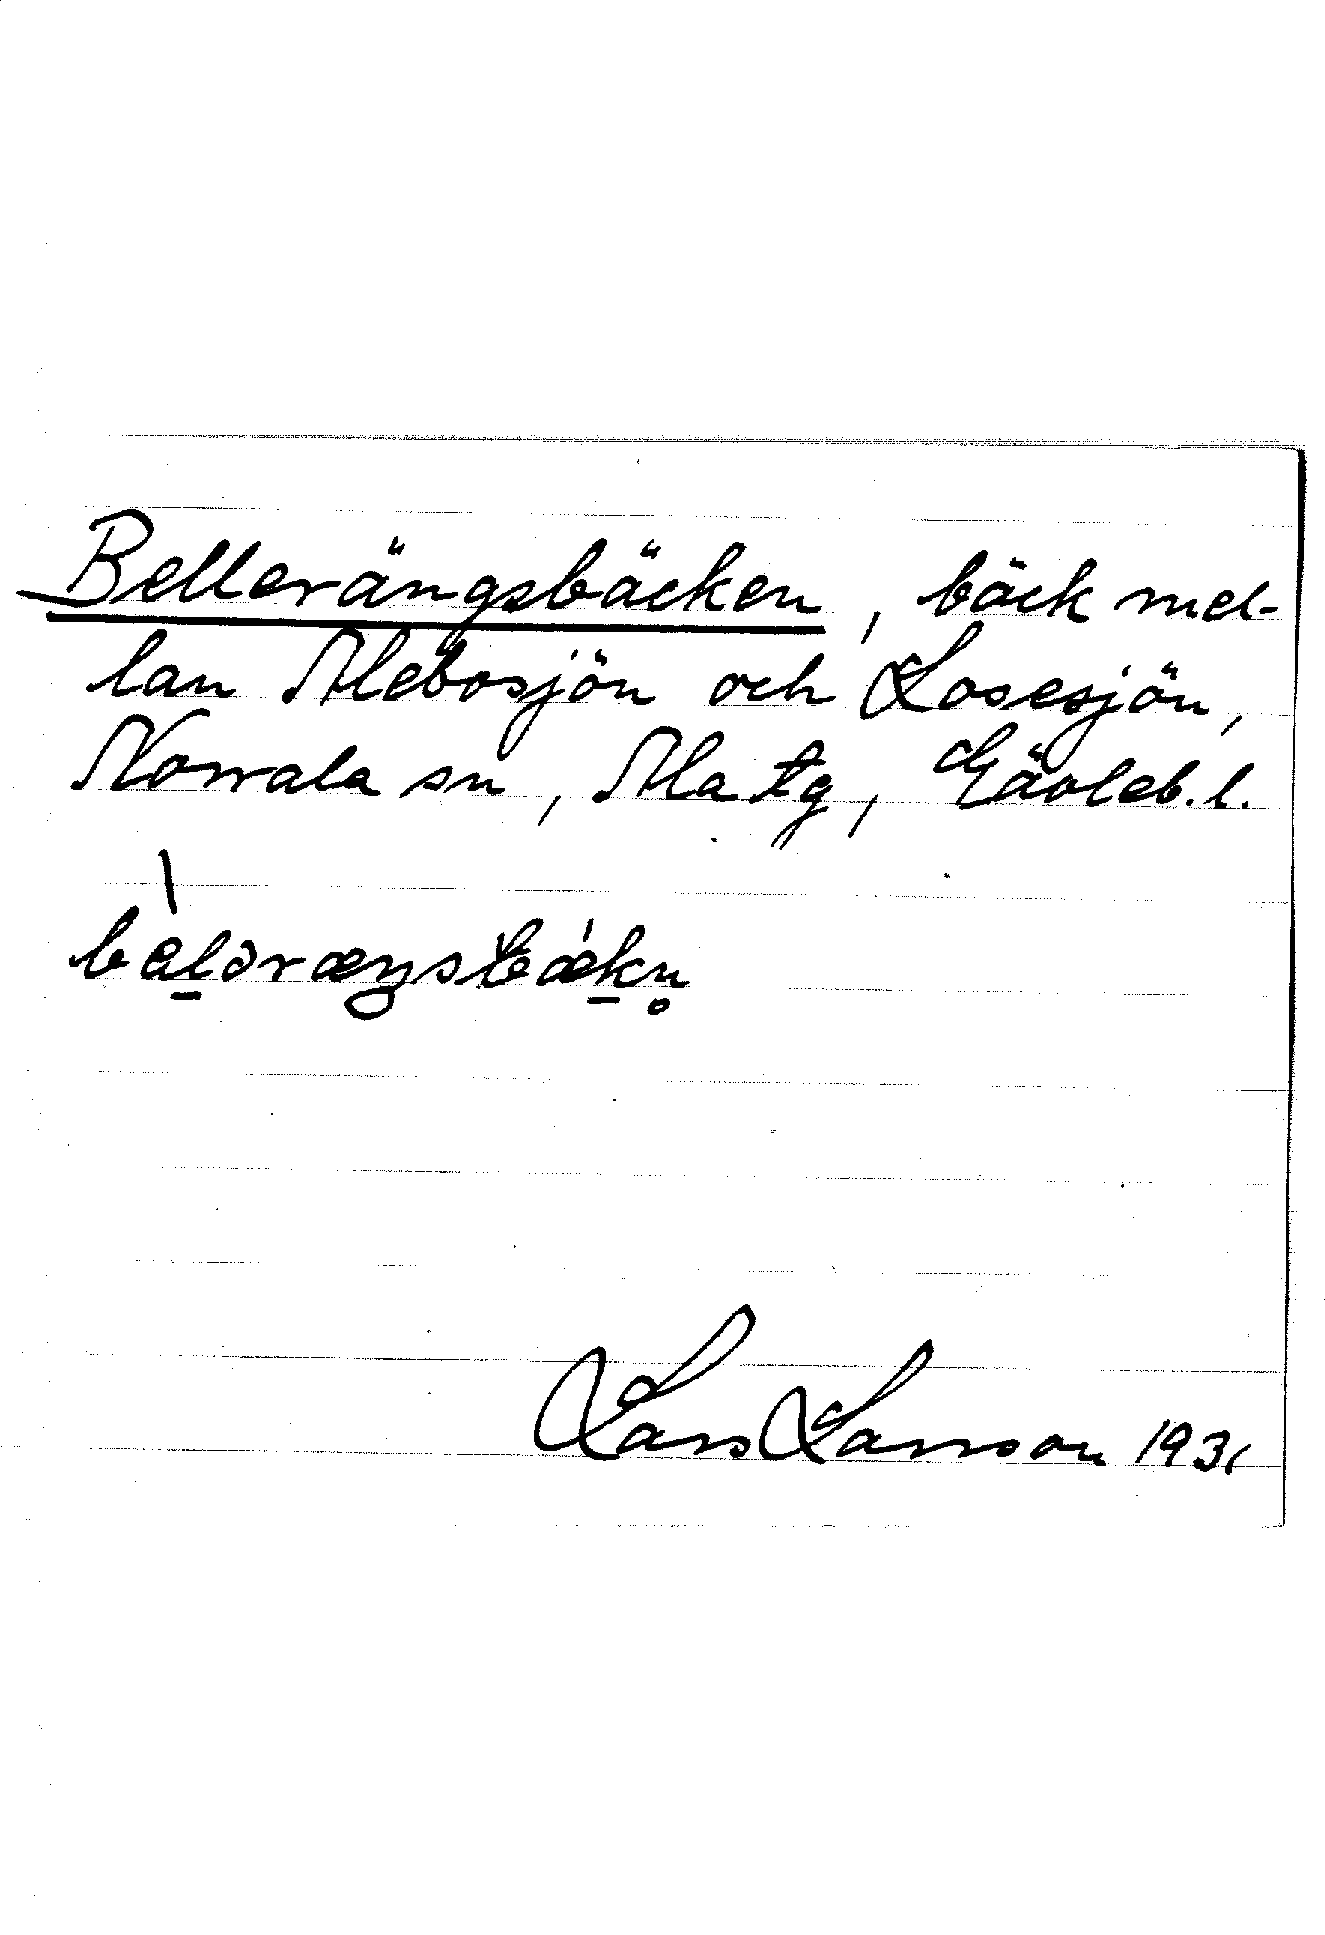 Bellerängsbäcken, bäck mel-
lan Alebosjön och Losesjön,
Norrala sn, Ala tg, Gävleb. l.
bèl̠əræŋsbækn̥
Lars Larsson 1931